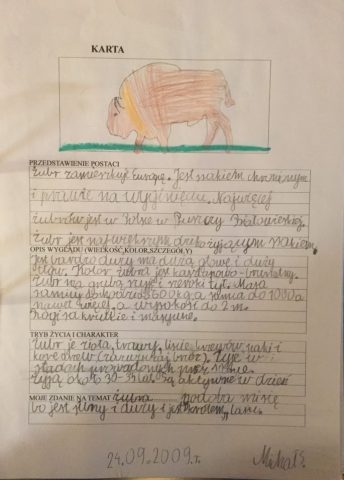 KARTA
PRZEDSTAWIENIE POSTACI
Żubr zamieszkuje Europę. Jest ssakiem chronionym
i prawie na wyginięciu. Najwięcej
żubrów jest w Polsce w Puszczy Białowieskiej.
Żubr jest największym dziko żyjącym ssakiem
OPIS WYGLĄDU (WIELKOŚĆ, KOLOR, SZCZEGÓŁY)
Jest bardzo duży ma dużą głowę i duży
Kolor żubra jest kasztanowo-brunatny.
Żubr ma grubą szyję i szeroki tył. Masa
samicy dochodzi do 600 kg a samca do 1000 a
nawet więcej a wysokość do 2 m.
Rogi są krótkie i masywne.
TRYB ŻYCIA I CHARAKTER
Żubr je zioła, trawy, liście krzewów, pąki i
korę drzew Żyje w
stadach prowadzonych przez
Żyją około 30-35 lat. Są aktywne w dzień
MOJE ZDANIE NA TEMAT żubra podoba mi się
bo jest silny i duży i jest królem lasu.
24.09.2009.r.